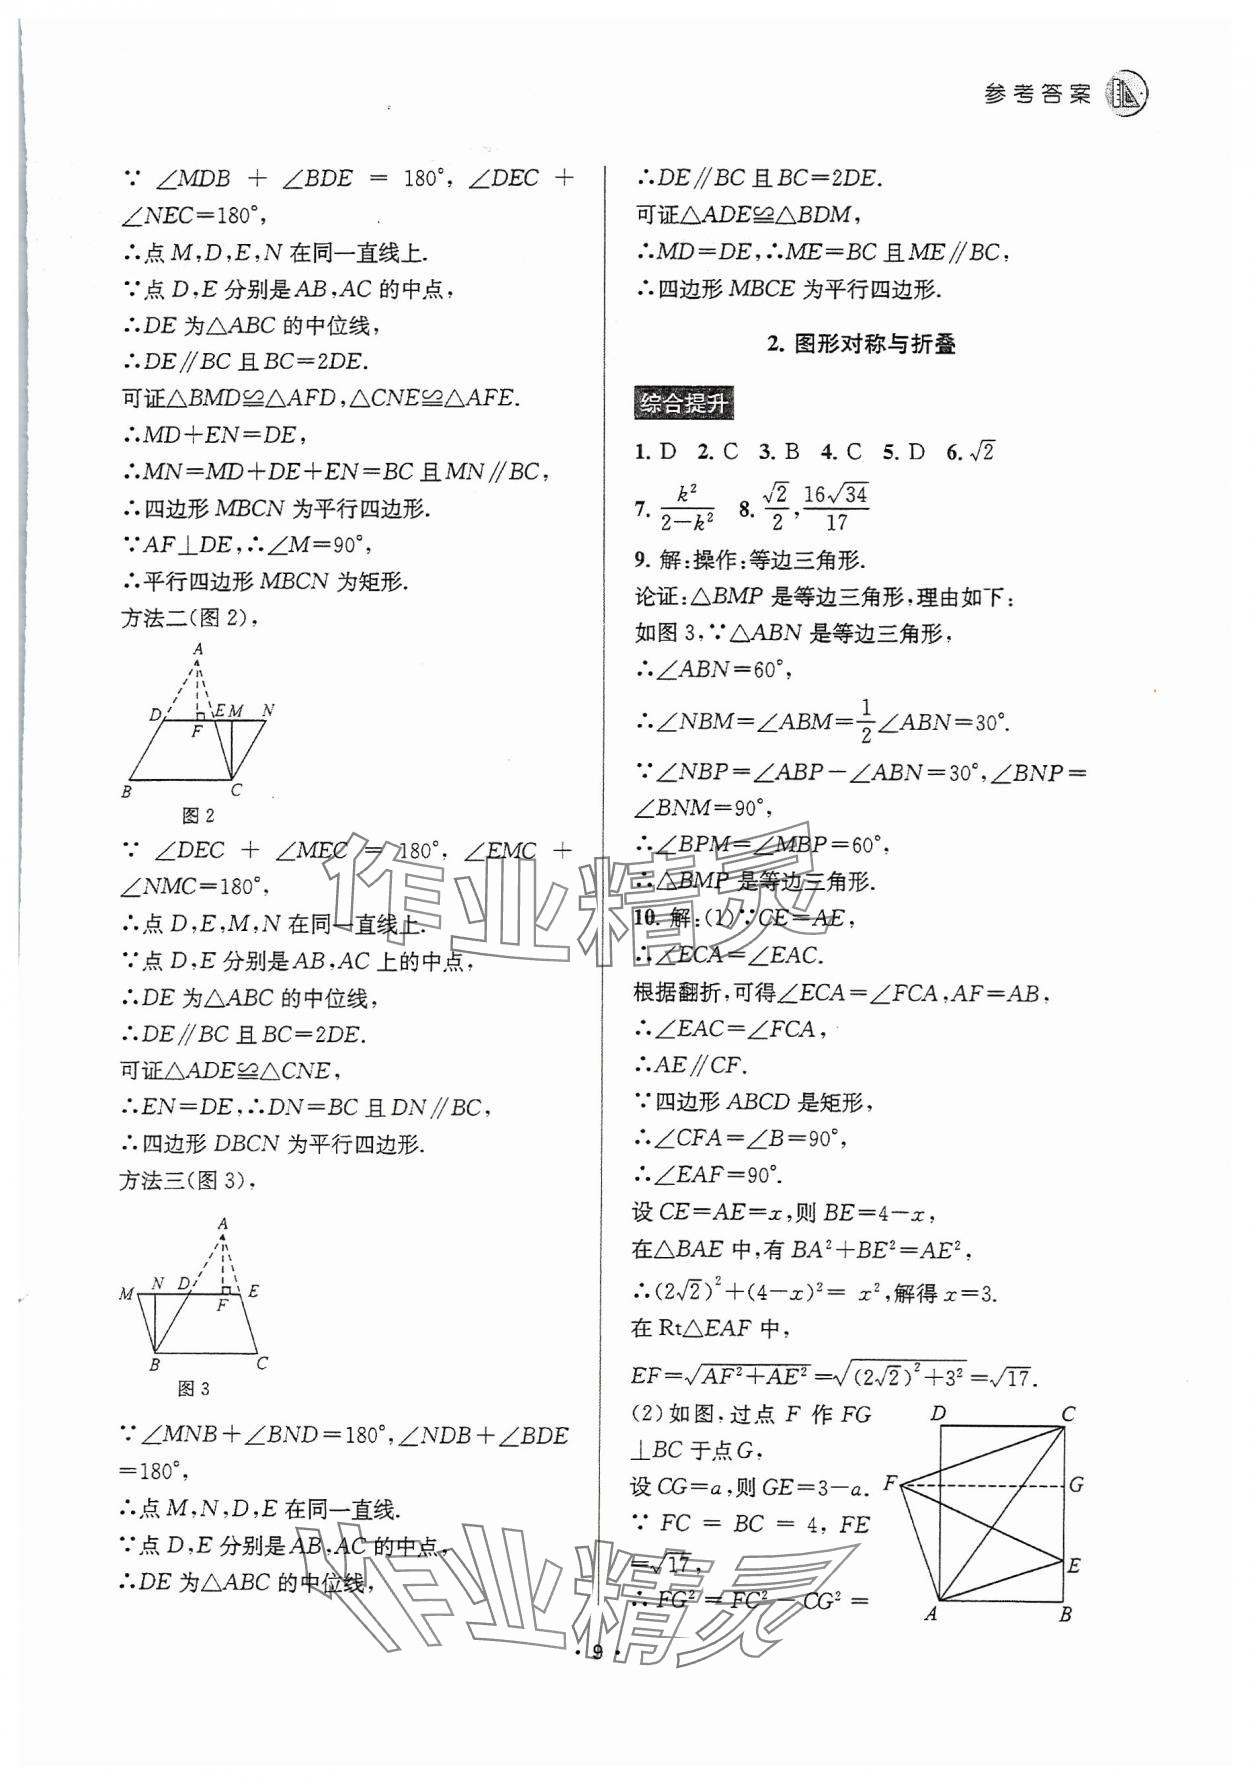 参考答案
∵ ∠MDB + ∠BDE = 180°, ∠DEC +
∠NEC=180°,
∴点 M,D,E,N 在同一直线上.
∵点 D,E 分别是AB,AC 的中点,
∴DE 为△ABC 的中位线,
∴DE∥BC 且 BC=2DE.
可证△BMD≌△AFD,△CNE≌△AFE.
∴MD+EN=DE,
∴MN=MD+DE+EN=BC 且 MN∥BC,
∴四边形 MBCN 为平行四边形.
∵AF⊥DE,∴∠M=90°,
∴平行四边形 MBCN 为矩形.
方法二(图 2),
A
D F E M N
B C
图 2
∵ ∠DEC + ∠MEC = 180°, ∠EMC +
∠NMC=180°,
∴点 D,E,M,N 在同一直线上.
∵点 D,E 分别是 AB,AC 上的中点,
∴DE 为△ABC 的中位线,
∴DE∥BC 且 BC=2DE.
可证△ADE≌△CNE,
∴EN=DE,∴DN=BC 且 DN∥BC,
∴四边形 DBCN 为平行四边形.
方法三(图 3),
A
M N D F E
B C
图 3
∵∠MNB+∠BND=180°,∠NDB+∠BDE
=180°,
∴点 M,N,D,E 在同一直线.
∵点 D,E 分别是 AB,AC 的中点,
∴DE 为△ABC 的中位线,
∴DE∥BC 且 BC=2DE.
可证△ADE≌△BDM,
∴MD=DE,∴ME=BC 且 ME∥BC,
∴四边形 MBCE 为平行四边形.
2. 图形对称与折叠
综合提升
1. D 2. C 3. B 4. C 5. D 6. √2
7. k²/(2−k²) 8. √2/2, 16√34/17
9. 解:操作:等边三角形.
论证:△BMP 是等边三角形,理由如下:
如图 3,∵△ABN 是等边三角形,
∴∠ABN=60°,
∴∠NBM=∠ABM=1/2∠ABN=30°.
∵∠NBP=∠ABP−∠ABN=30°,∠BNP=
∠BNM=90°,
∴∠BPM=∠MBP=60°,
∴△BMP 是等边三角形.
10. 解:(1)∵CE=AE,
∴∠ECA=∠EAC.
根据翻折,可得∠ECA=∠FCA,AF=AB,
∴∠EAC=∠FCA,
∴AE∥CF.
∵四边形 ABCD 是矩形,
∴∠CFA=∠B=90°,
∴∠EAF=90°.
设 CE=AE=x,则 BE=4−x,
在△BAE 中,有 BA²+BE²=AE²,
∴(2√2)²+(4−x)²= x²,解得 x=3.
在 Rt△EAF 中,
EF=√(AF²+AE²)=√((2√2)²+3²)=√17.
(2)如图,过点 F 作 FG
⊥BC 于点G,
设 CG=a,则 GE=3−a.
∵ FC = BC = 4, FE
=√17,
∴ FG² = FC² − CG² =
D C
F G
E
A B
作业精灵
作业精灵
· 9 ·